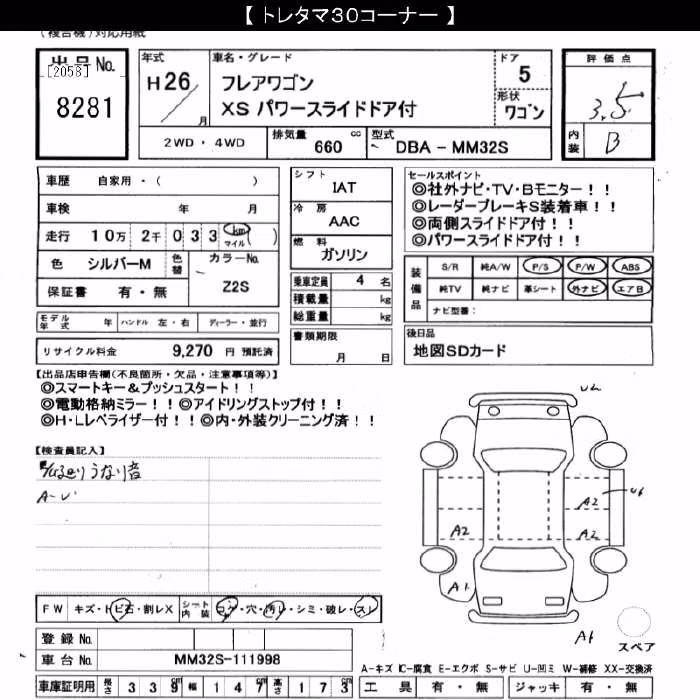 【 トレタマ30コーナー 】
(複合機)対応用紙
出品No.
[2058]
8281
年式
H26
月
車名・グレード
フレアワゴン
XS パワースライドドア付
ドア
5
形状
ワゴン
評価点
3.5
内装
B
2WD ・ 4WD
排気量
660
cc
型式
DBA - MM32S
車歴
自家用 ・ ( )
車検
年 月
走行
10万 2千 0 3 3
km
マイル
( )
色
シルバーM
色替
カラーNo.
Z2S
保証書
有 ・ 無
シフト
IAT
冷房
AAC
燃料
ガソリン
乗車定員
4 名
積載量
kg
総重量
kg
セールスポイント
◎社外ナビ・TV・Bモニター！！
◎レーダーブレーキS装着車！！
◎両側スライドドア付！！
◎パワースライドドア付！！
装備品
S/R 純A/W P/S P/W ABS
純TV 純ナビ 革シート 外ナビ エアB
ナビ型番：
モデル年式
年
ハンドル 左 ・ 右
ディーラー ・ 並行
リサイクル料金
9,270 円 預託済
書類期限
月 日
後日品
地図SDカード
【出品店申告欄(不良箇所・欠品・注意事項等)】
◎スマートキー＆プッシュスタート！！
◎電動格納ミラー！！◎アイドリングストップ付！！
◎H・Lレベライザー付！！◎内・外装クリーニング済！！
【検査員記入】
うなり音
A-U
A2
A2
A2
A1
スペア
FW
キズ・トビ石・割レX
シート内装
コゲ・穴・汚レ・シミ・破レ・スレ
登録No.
車台No.
MM32S-111998
車庫証明用
長さ 3 3 9 cm
幅 1 4 7 cm
高さ 1 7 3 cm
A-キズ C-腐食 E-エクボ S-サビ U-凹ミ W-補修 XX-交換済
工具 有 ・ 無
ジャッキ 有 ・ 無